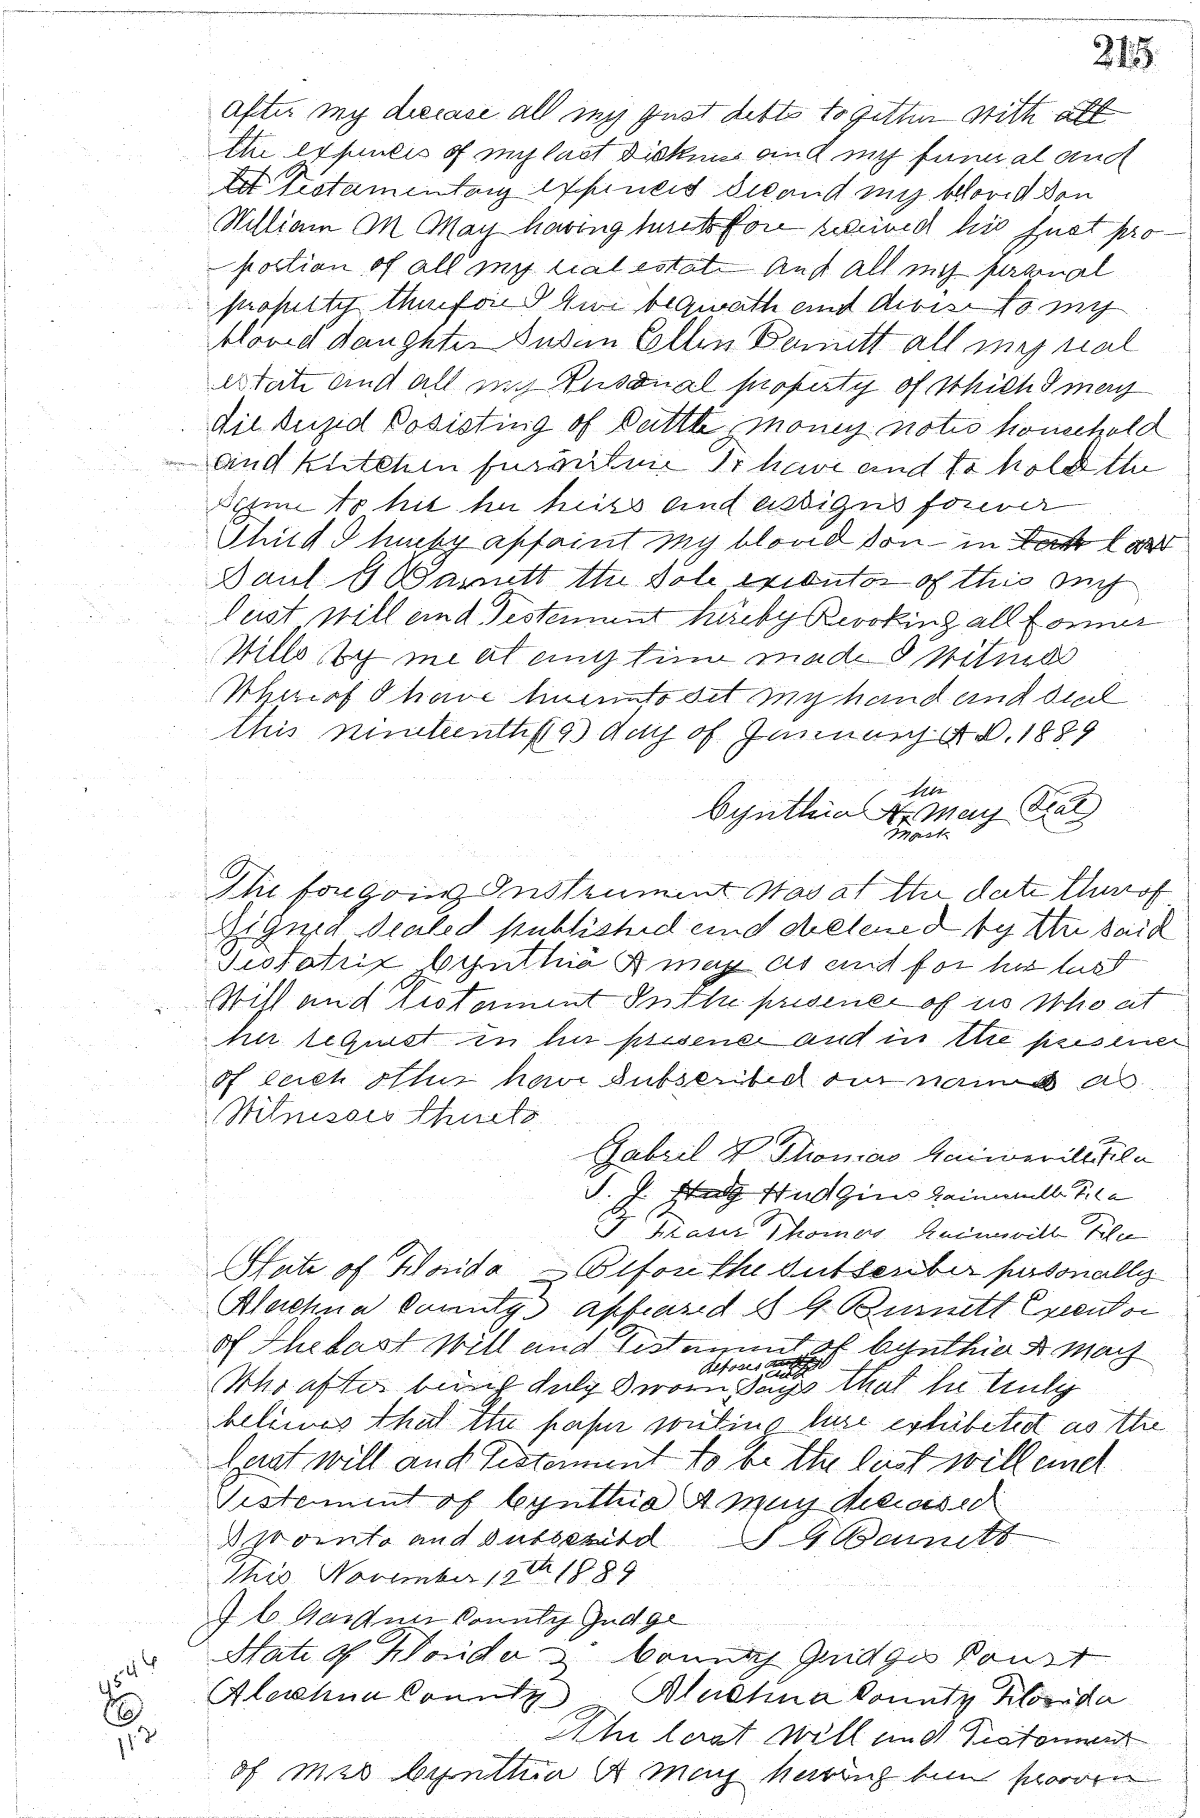 215
after my decease all my just debts together with all
the expences of my last sickness and my funeral and
Testamentary expences Second my beloved Son
William M May having heretofore received his just pro
portion of all my real estate and all my personal
property therefore I Give bequeath and devise to my
bloved daughter Susan Ellen Barnett all my real
estate and all my Personal property of which I may
die seized Cosisting of Cattle money notes household
and Kittchen furniture To have and to hold the
Same to her her heirs and assigns forever
Third I hereby appoint my bloved Son in law
Saul G Barnett the Sole executor of this my
last will and Testament hereby Revoking all former
Wills by me at any time made I Witness
Whereof I have hereunto set my hand and seal
this nineteenth (19) day of January A.D. 1889
her
Cynthia A x May Seal
mark
The foregoing Instrument was at the date thereof
Signed Sealed published and declared by the said
Testatrix Cynthia A may as and for her last
Will and Testament In the presence of us who at
her request in her presence and in the presence
of each other have Subscribed our names as
Witnesses thereto
Gabriel P Thomas Gainesville Fla
S. J. Hug Hudgins Gainesville Fla
Fraser Thomas Gainesville Fla
State of Florida } Before the subscriber personally
Alachua County } appeared S G Barnett Executor
of the Last Will and Testament of Cynthia A May
deposes and
Who after being duly Sworn Says that he truly
believes that the paper writing here exhibeted as the
last will and Testament to be the last will and
Testament of Cynthia A may deceased
Sworn to and subscribd S G Barnett
This November 12th 1889
J C Gardner County Judge
State of Florida } County Judges Court
Alachua County } Alachua County Florida
The last Will and Testament
of Mrs Cynthia A May having been prooven
4546
6
112